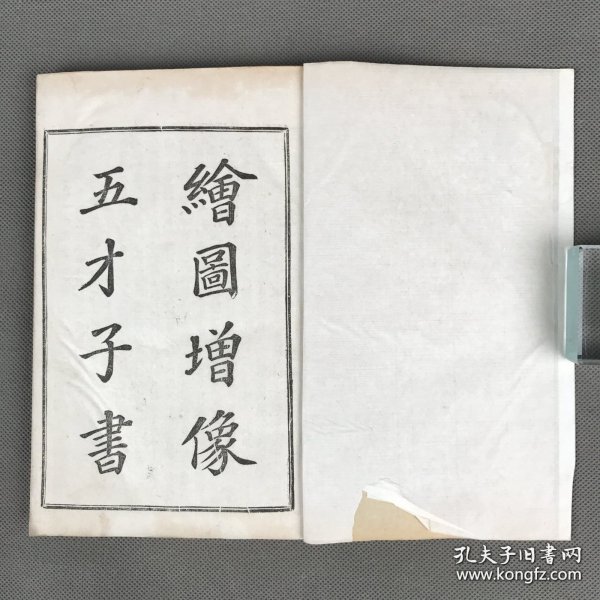 繪圖增像
五才子書
孔夫子旧書网
www.kongfz.com